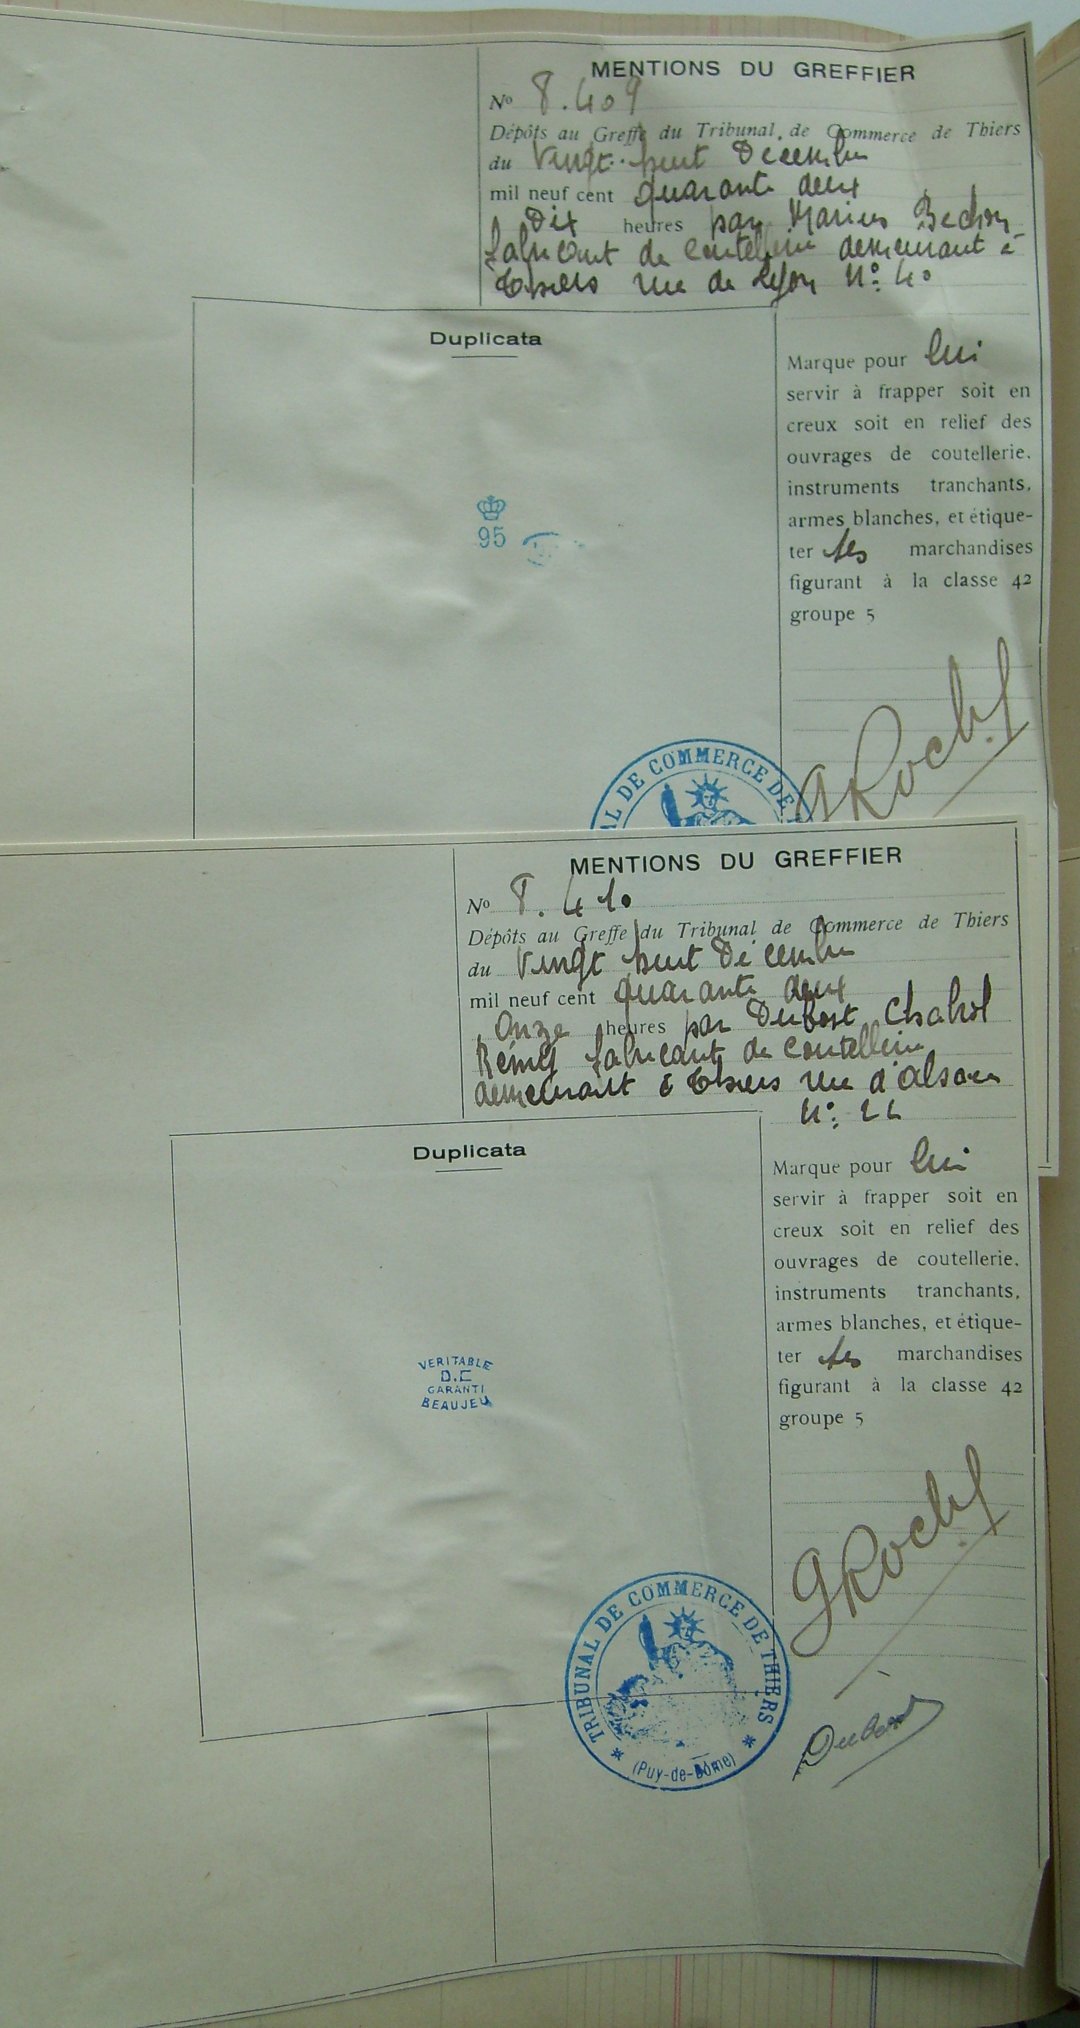 MENTIONS DU GREFFIER
No 8.409
Dépôts au Greffe du Tribunal de Commerce de Thiers
du Vingt huit Décembre
mil neuf cent quarante deux
Dix heures par Marius Bechon
fabricant de coutellerie demeurant à
Thiers rue de Lyon N° 40
Duplicata
Marque pour lui
servir à frapper soit en
creux soit en relief des
ouvrages de coutellerie.
instruments tranchants,
armes blanches, et étique-
ter ses marchandises
figurant à la classe 42
groupe 5
95
AL DE COMMERCE DE
GRoch
MENTIONS DU GREFFIER
No 8.410
Dépôts au Greffe du Tribunal de Commerce de Thiers
du Vingt huit Décembre
mil neuf cent quarante deux
Onze heures par Dubost Chabrol
Rémy fabricant de coutellerie
demeurant à Thiers rue d'alsace
N°
Duplicata
Marque pour lui
servir à frapper soit en
creux soit en relief des
ouvrages de coutellerie.
instruments tranchants,
armes blanches, et étique-
ter ses marchandises
figurant à la classe 42
groupe 5
VERITABLE
D.C
GARANTI
BEAUJEU
TRIBUNAL DE COMMERCE DE THIERS
(Puy-de-Dôme)
GRoch
Dubost